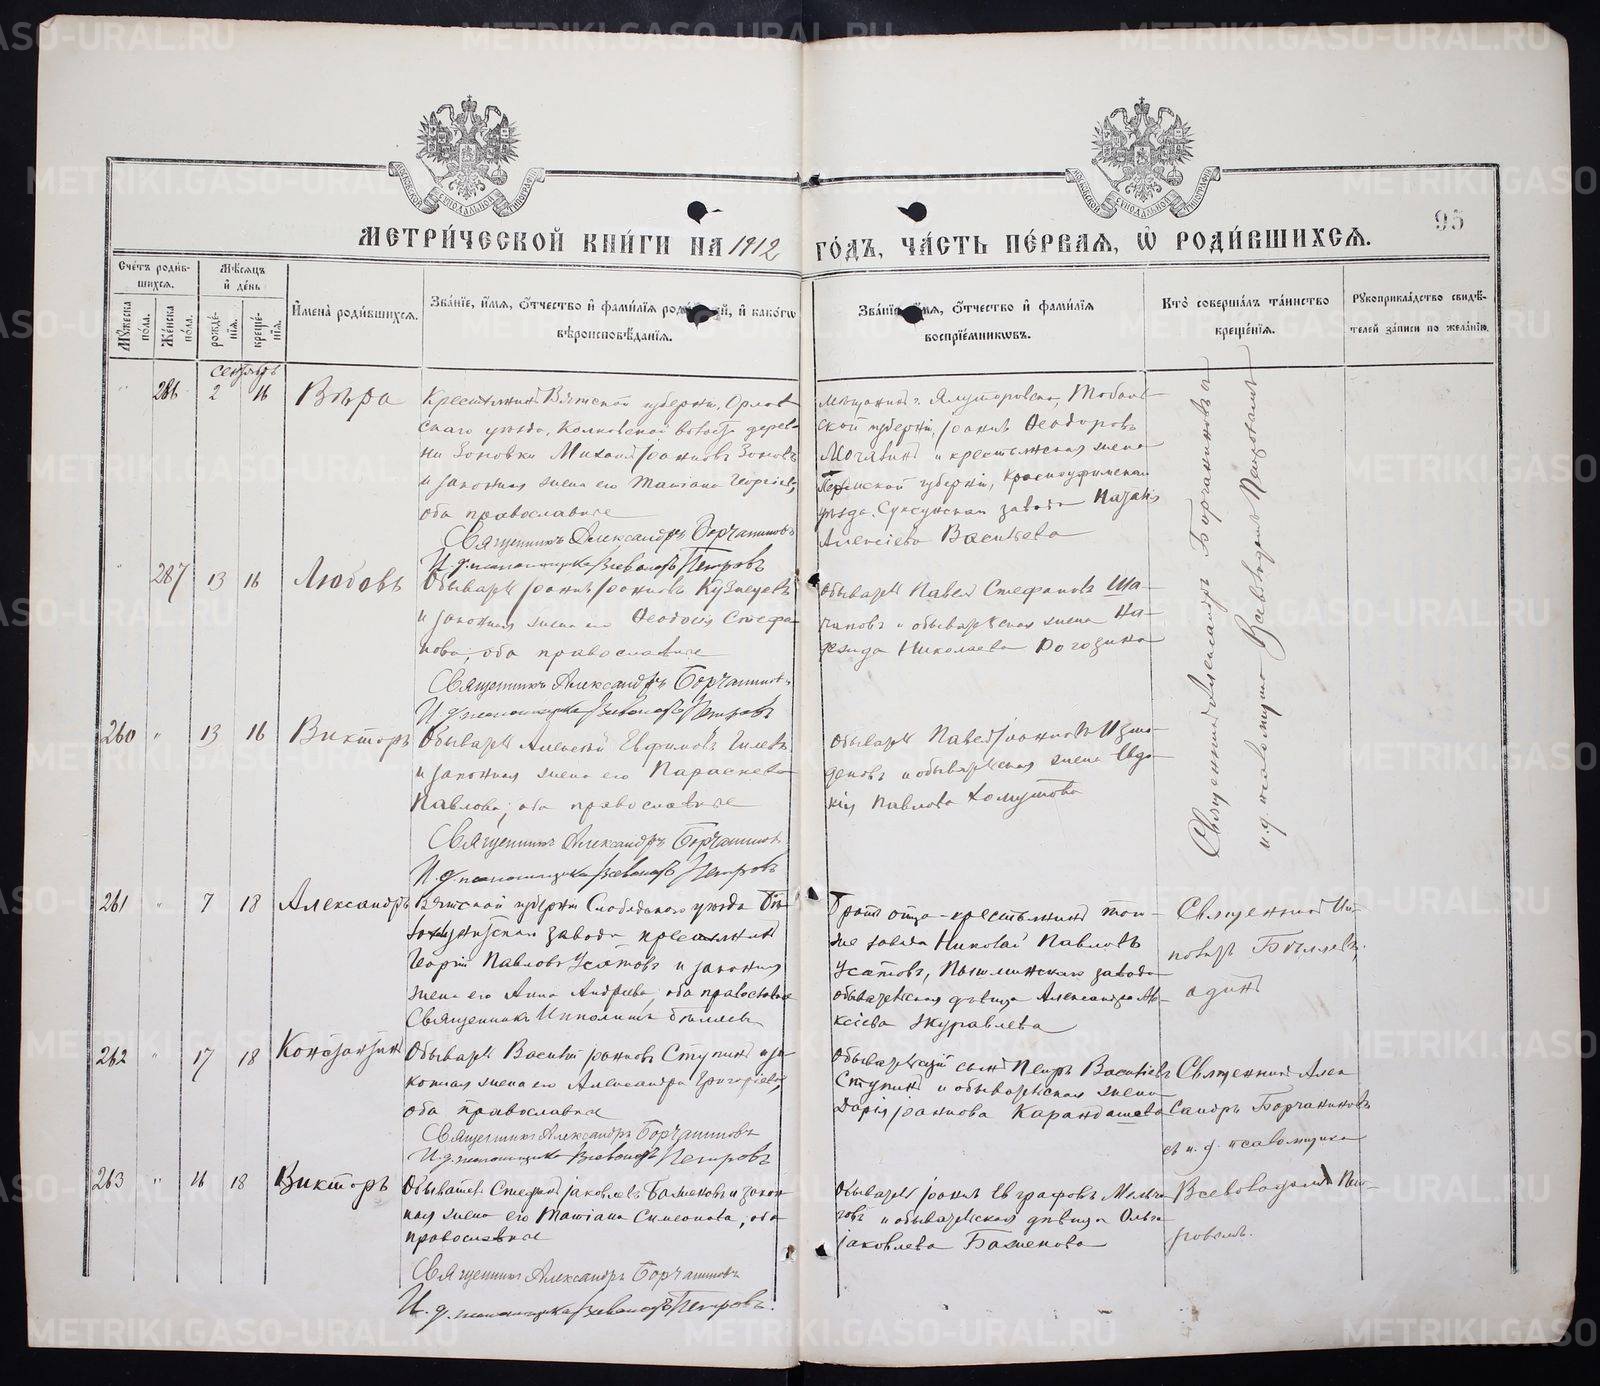 МЕТРИ́ЧЕСКОЙ КНИ́ГИ НА 1912 ГО́ДЪ, ЧА́СТЬ ПЕ́РВАЯ, Ѡ҆ РОДИ́ВШИХСЯ.
95
Сче́тъ роди́вшихся.
Мѣ́сяцъ и҆ де́нь
Му́жеска по́ла.
Же́нска по́ла.
рожде́нїя.
креще́нїя.
И҆мена̀ роди́вшихся.
Зва́нїе, и҆́мя, ѻ҆́тчество и҆ фами́лїя роди́телей, и҆ како́гѡ
вѣроисповѣ́данїя.
Зва́нїе, и҆́мя, ѻ҆́тчество и҆ фами́лїя
воспрїе́мникѡвъ.
Кто̀ соверша́лъ та́инство
креще́нїя.
Рукоприкла́дство свидѣ́-
телей за́писи по жела́нїю.
Сентябрь
286 2 16 Вѣра
Крестьянинъ Вятской губерніи, Орлов-
скаго уѣзда, волости дерев-
ни Зоновки Михаилъ Іоанновъ Зоновъ
и законная жена его Татіана Георгіева,
оба православные
Священникъ Александръ Борчаниновъ
И. д. псаломщика Всеволодъ Петровъ
Мѣщанинъ г. Ялуторовска, Тоболь-
ской губерніи, Іоаннъ Ѳеодоровъ
и крестьянская жена
Пермской губерніи, Красноуфимскаго
уѣзда, Суксунскаго завода
Алексіева Васильева
287 13 16 Любовь
Обыватель Іоаннъ Іоанновъ Кузнецовъ
и законная жена его Ѳеодосія Стефа-
нова, оба православные
Священникъ Александръ Борчаниновъ
И. д. псаломщика Всеволодъ Петровъ
Обыватель Павелъ Стефановъ Ша-
и обывательская жена На-
дежда Николаева Рогозина
260 " 13 16 Викторъ
Обыватель Алексѣй Евфимовъ Гилевъ
и законная жена его Параскева
Павлова, оба православные
Священникъ Александръ Борчаниновъ
И. д. псаломщика Всеволодъ Петровъ
Обыватель Павелъ Іоанновъ Измо-
деновъ и обывательская жена Евдо-
кія Павлова Хомутова
Священникъ Александръ Борчаниновъ и
и. д. псаломщика Всеволодъ Петровъ
261 " 7 18 Александръ
Вятской губерніи Слободского уѣзда
завода крестьянинъ
Георгій Павловъ Усатовъ и законная
жена его Анна Андреева, оба православные
Священникъ Ипполитъ Бѣляевъ
Братъ отца - крестьянинъ того-
же завода Николай Павловъ
Усатовъ, Пышминскаго завода
обывательская дѣвица Александра Але-
ксіева Журавлева
Священникъ Ип-
политъ Бѣляевъ,
одинъ
262 " 17 18 Константинъ
Обыватель Василій Іоанновъ Ступинъ и за-
конная жена его Александра Григоріева,
оба православные
Священникъ Александръ Борчаниновъ
И. д. псаломщика Всеволодъ Петровъ
Обывательскій сынъ Петръ Васильевъ
Ступинъ и обывательская жена
Дарія Іоаннова Карандашева
Священникъ Алек
сандръ Борчаниновъ
съ и. д. псаломщика
263 " 16 18 Викторъ
Обыватель Стефанъ Іаковлевъ Баженовъ и закон-
ная жена его Татіана Симеонова, оба
православные
Священникъ Александръ Борчаниновъ
И. д. псаломщика Всеволодъ Петровъ.
Обыватель Іоаннъ Евграфовъ
и обывательская дѣвица Ольга
Іаковлева Баженова
Всеволодомъ Пет-
ровымъ.
METRIKI.GASO-URAL.RU